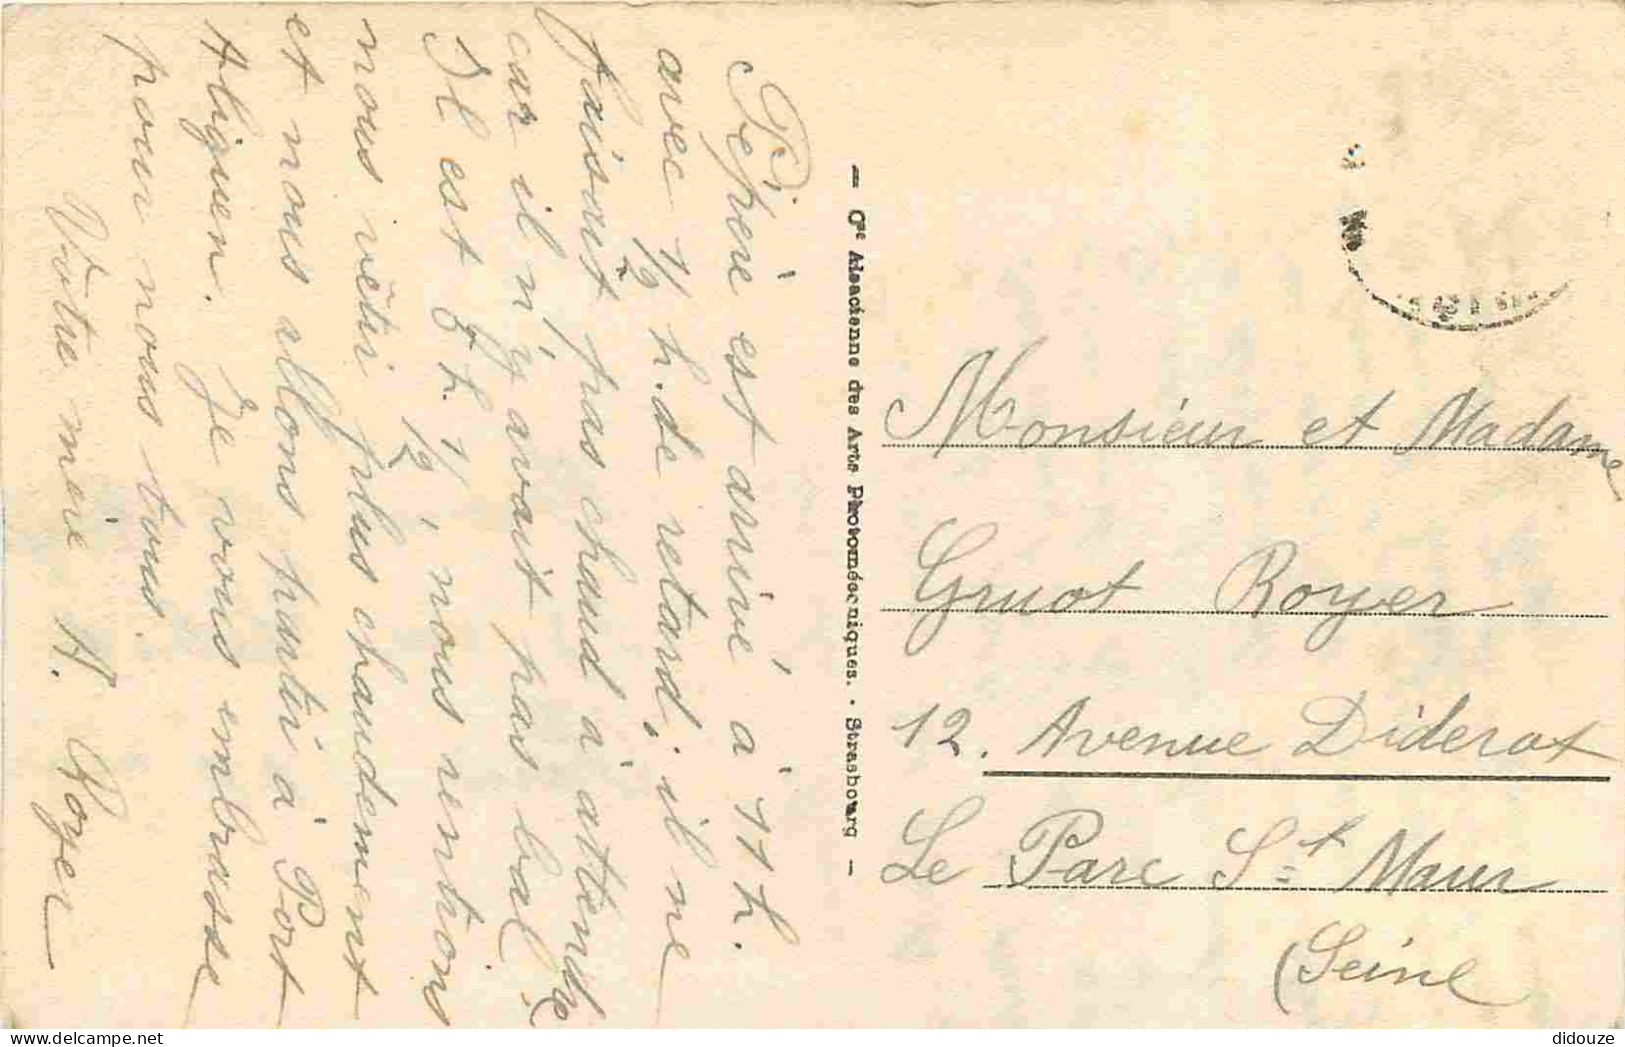 Pépère est arrivé à 11 h.
avec 1/2 h. de retard, il ne
faisait pas chaud à attendre
car il n'y avait pas bal
Il est 5 h 1/2, nous rentrons
nous vêtir plus chaudement
et nous allons partir à Port
Aliguen. Je vous embrasse
pour nous tous.
Votre mère H. Royer
— Cie Alsacienne des Arts Photomécaniques. - Strasbourg —
Monsieur et Madame
Gruot Royer
12. Avenue Diderot
Le Parc St Maur
(Seine
didouze